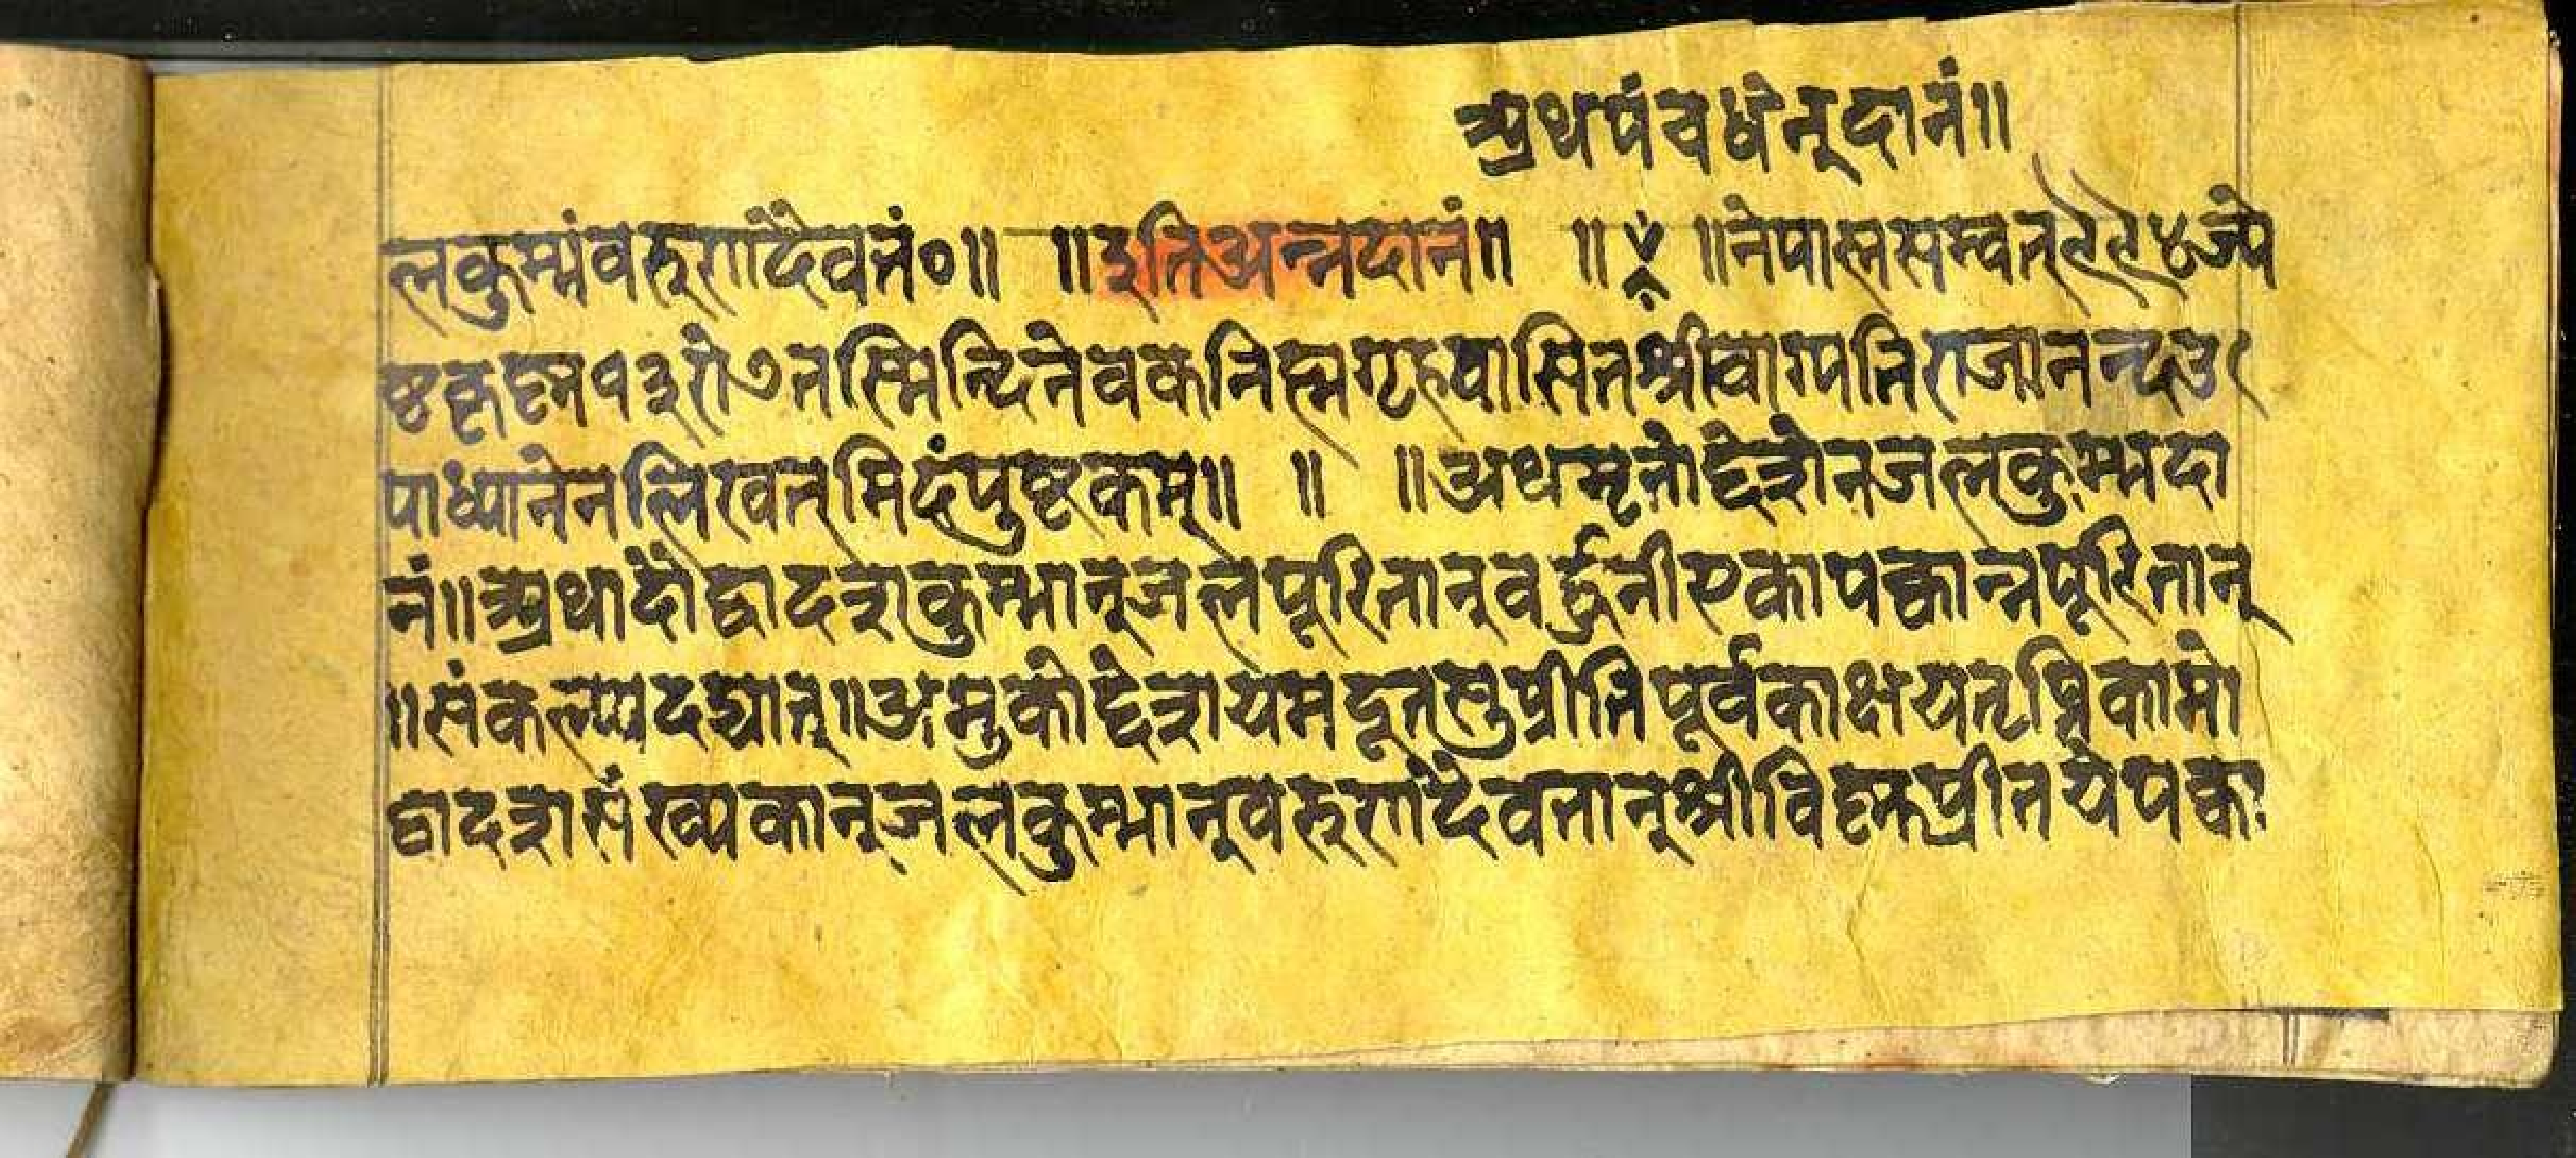 अथपंचधेनूदानं॥
लकुम्भंवरुणदैवतं०॥ ॥इतिअन्नदानं॥ ॥ ॥नेपालसम्वत्९९४ज्ये
ष्ठकृष्ण१३रो७तस्मिन्दिनेवकनिह्मगृहवासितश्रीवाग्पतिराजानन्दउ
पाध्यानेनलिखत्मिदंपुष्टकम्॥ ॥ ॥अथमृतोद्देशेनजलकुम्भदा
नं॥अथादौद्वादशकुम्भान्जलपूरितान्वर्द्धनीएकापक्वान्नपूरितान्
॥संकल्प्यदद्यात्॥अमुकोद्देशयमदूतसुप्रीतिपूर्वकाक्षयतृप्तिकामो
द्वादशसंख्यकान्जलकुम्भान्वरुणदैवतान्श्रीविष्णुप्रीतयेपक्वा